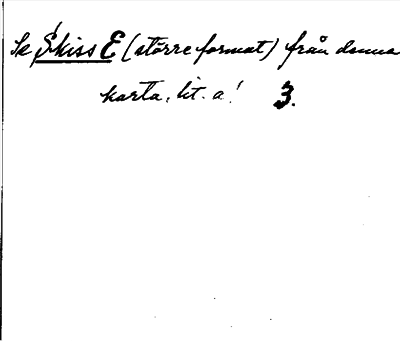 Se Skiss E (större format) från denna
karta, lit. a! 3.